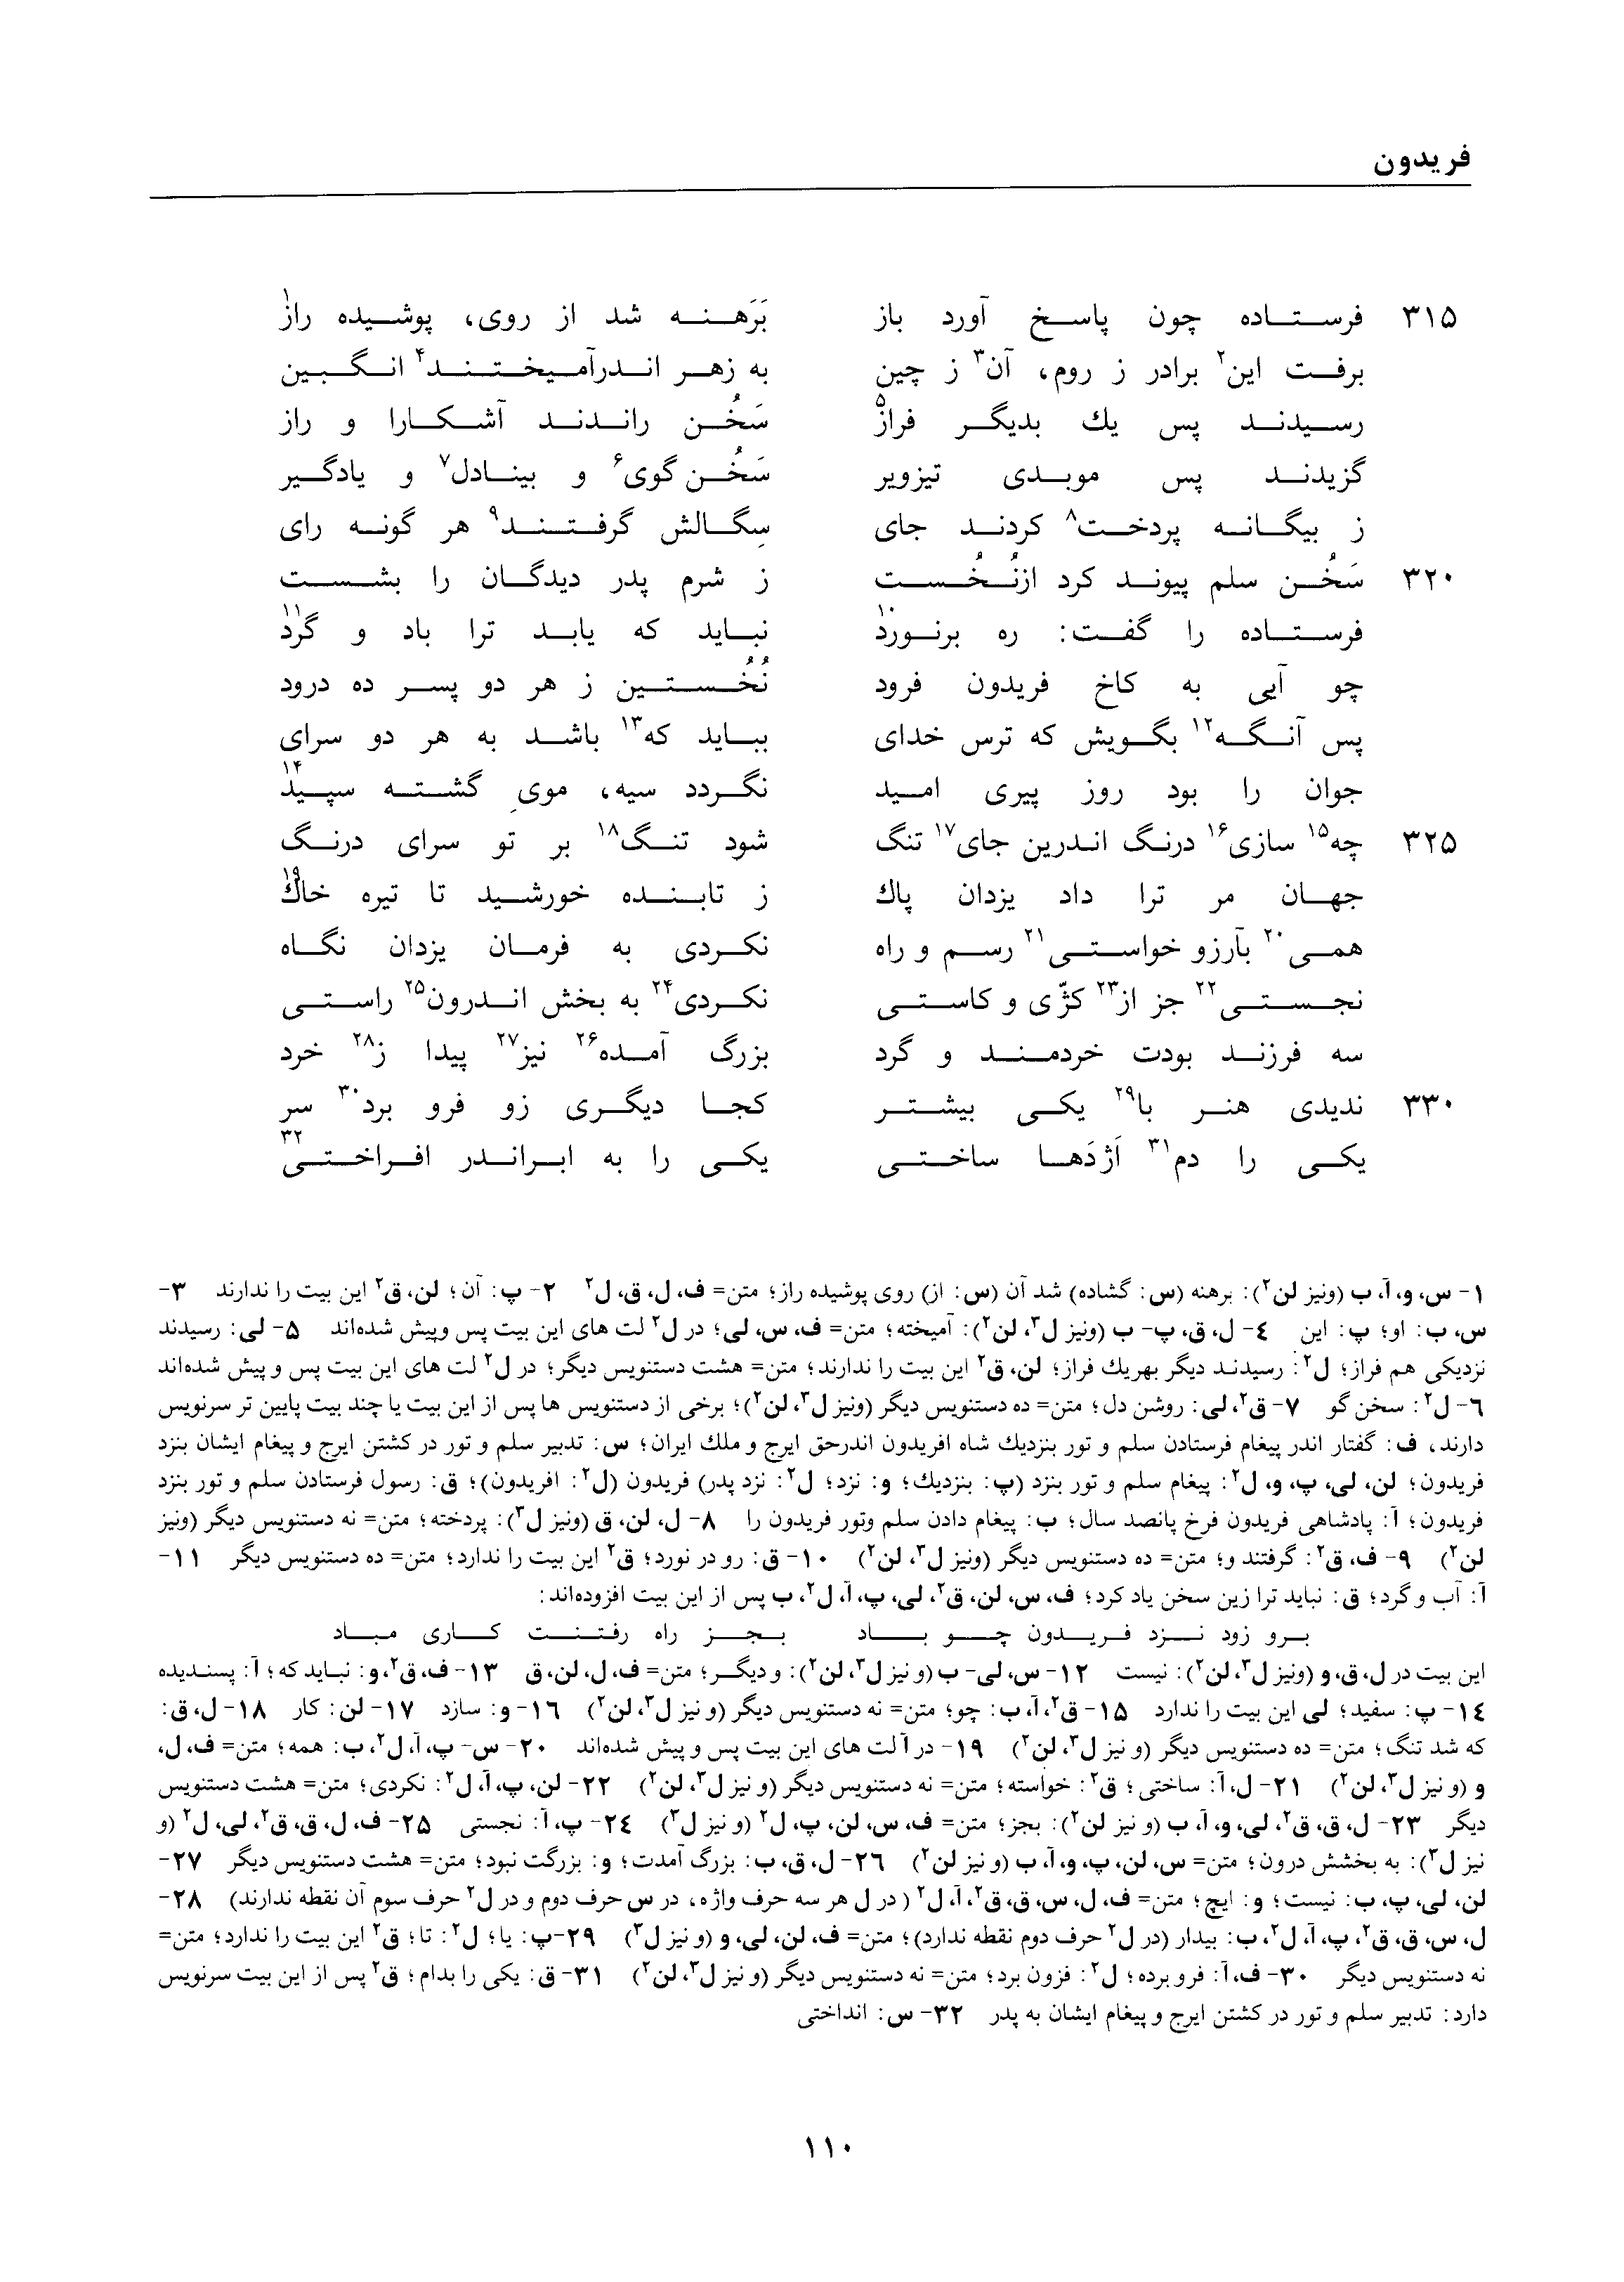 فریدون
۳۱۵ فرستاده چون پاسخ آورد باز بَرَهنه شد از روی، پوشیده راز۱
برفت این۲ برادر ز روم، آن۳ ز چین به زهر اندرآمیختند۴ انگبین
رسیدند پس یك بدیگر فراز۵ سَخُن راندند آشکارا و راز
گزیدند پس موبدی تیزویر سَخُن‌گوی۶ و بینادل۷ و یادگیر
ز بیگانه پردخت۸ کردند جای سِگالش گرفتند۹ هر گونه رای
۳۲۰ سَخُن سلم پیوند کرد ازنُخُست ز شرم پدر دیدگان را بشست
فرستاده را گفت: ره برنورد۱۰ نباید که یابد ترا باد و گرد۱۱
چو آیی به کاخ فریدون فرود نُخُستین ز هر دو پسر ده درود
پس آنگه۱۲ بگویش که ترس خدای بباید که۱۳ باشد به هر دو سرای
جوان را بود روز پیری امید نگردد سیه، مویِ گشته سپید۱۴
۳۲۵ چه۱۵ سازی۱۶ درنگ اندرین جای۱۷ تنگ شود تنگ۱۸ بر تو سرای درنگ
جهان مر ترا داد یزدان پاك ز تابنده خورشید تا تیره خاك۱۹
همی۲۰ بآرزو خواستی۲۱ رسم و راه نکردی به فرمان یزدان نگاه
نجستی۲۲ جز از۲۳ کژّی و کاستی نکردی۲۴ به بخش اندرون۲۵ راستی
سه فرزند بودت خردمند و گرد بزرگ آمده۲۶ نیز۲۷ پیدا ز۲۸ خرد
۳۳۰ ندیدی هنر با۲۹ یکی بیشتر کجا دیگری زو فرو برد۳۰ سر
یکی را دم۳۱ اَژدَها ساختی یکی را به ابراندر افراختی۳۲
۱- س، و، آ، ب (ونیز لن۲): برهنه (س: گشاده) شد آن (س: از) روی پوشیده راز؛ متن= ف، ل، ق، ل۲ ۲- پ: آن؛ لن، ق۲ این بیت را ندارند ۳-
س، ب: او؛ پ: این ۴- ل، ق، پ- ب (ونیز ل۳، لن۲): آمیخته؛ متن= ف، س، لی؛ در ل۲ لت های این بیت پس وپیش شده‌اند ۵- لی: رسیدند
نزدیکی هم فراز؛ ل۲: رسیدند دیگر بهریك فراز؛ لن، ق۲ این بیت را ندارند؛ متن= هشت دستنویس دیگر؛ در ل۲ لت های این بیت پس و پیش شده‌اند
۶- ل۲: سخن گو ۷- ق۲، لی: روشن دل؛ متن= ده دستنویس دیگر (ونیز ل۳، لن۲)؛ برخی از دستنویس ها پس از این بیت یا چند بیت پایین تر سرنویس
دارند، ف: گفتار اندر پیغام فرستادن سلم و تور بنزدیك شاه افریدون اندرحق ایرج و ملك ایران؛ س: تدبیر سلم و تور در کشتن ایرج و پیغام ایشان بنزد
فریدون؛ لن، لی، پ، و، ل۲: پیغام سلم و تور بنزد (پ: بنزدیك؛ و: نزد؛ ل۲: نزد پدر) فریدون (ل۲: افریدون)؛ ق: رسول فرستادن سلم و تور بنزد
فریدون؛ آ: پادشاهی فریدون فرخ پانصد سال؛ ب: پیغام دادن سلم وتور فریدون را ۸- ل، لن، ق (ونیز ل۳): پردخته؛ متن= نه دستنویس دیگر (ونیز
لن۲) ۹- ف، ق۲: گرفتند و؛ متن= ده دستنویس دیگر (ونیز ل۳، لن۲) ۱۰- ق: رو در نورد؛ ق۲ این بیت را ندارد؛ متن= ده دستنویس دیگر ۱۱-
آ: آب و گرد؛ ق: نباید ترا زین سخن یاد کرد؛ ف، س، لن، ق۲، لی، پ، آ، ل۲، ب پس از این بیت افزوده‌اند:
برو زود نزد فریدون چو باد بجز راه رفتنت کاری مباد
این بیت در ل، ق، و (ونیز ل۳، لن۲): نیست ۱۲- س، لی- ب (و نیز ل۳، لن۲): و دیگر؛ متن= ف، ل، لن، ق ۱۳- ف، ق۲، و: نباید که؛ آ: پسندیده
۱۴- پ: سفید؛ لی این بیت را ندارد ۱۵- ق۲، آ، ب: چو؛ متن= نه دستنویس دیگر (و نیز ل۳، لن۲) ۱۶- و: سازد ۱۷- لن: کار ۱۸- ل، ق:
که شد تنگ؛ متن= ده دستنویس دیگر (و نیز ل۳، لن۲) ۱۹- در آ لت های این بیت پس و پیش شده‌اند ۲۰- س- پ، آ، ل۲، ب: همه؛ متن= ف، ل،
و (و نیز ل۳، لن۲) ۲۱- ل، آ: ساختی؛ ق۲: خواسته؛ متن= نه دستنویس دیگر (و نیز ل۳، لن۲) ۲۲- لن، پ، آ، ل۲: نکردی؛ متن= هشت دستنویس
دیگر ۲۳- ل، ق، ق۲، لی، و، آ، ب (و نیز لن۲): بجز؛ متن= ف، س، لن، پ، ل۲ (و نیز ل۳) ۲۴- پ، آ: نجستی ۲۵- ف، ل، ق، ق۲، لی، ل۲ (و
نیز ل۳): به بخشش درون؛ متن= س، لن، پ، و، آ، ب (و نیز لن۲) ۲۶- ل، ق، ب: بزرگ آمدت؛ و: بزرگت نبود؛ متن= هشت دستنویس دیگر ۲۷-
لن، لی، پ، ب: نیست؛ و: ایچ؛ متن= ف، ل، س، ق، ق۲، آ، ل۲ (در ل هر سه حرف واژه، در س حرف دوم و در ل۲ حرف سوم آن نقطه ندارند) ۲۸-
ل، س، ق، ق۲، پ، آ، ل۲، ب: بیدار (در ل۲ حرف دوم نقطه ندارد)؛ متن= ف، لن، لی، و (و نیز ل۳) ۲۹-پ: یا؛ ل۲: تا؛ ق۲ این بیت را ندارد؛ متن=
نه دستنویس دیگر ۳۰- ف، آ: فرو برده؛ ل۲: فزون برد؛ متن= نه دستنویس دیگر (و نیز ل۳، لن۲) ۳۱- ق: یکی را بدام؛ ق۲ پس از این بیت سرنویس
دارد: تدبیر سلم و تور در کشتن ایرج و پیغام ایشان به پدر ۳۲- س: انداختی
۱۱۰